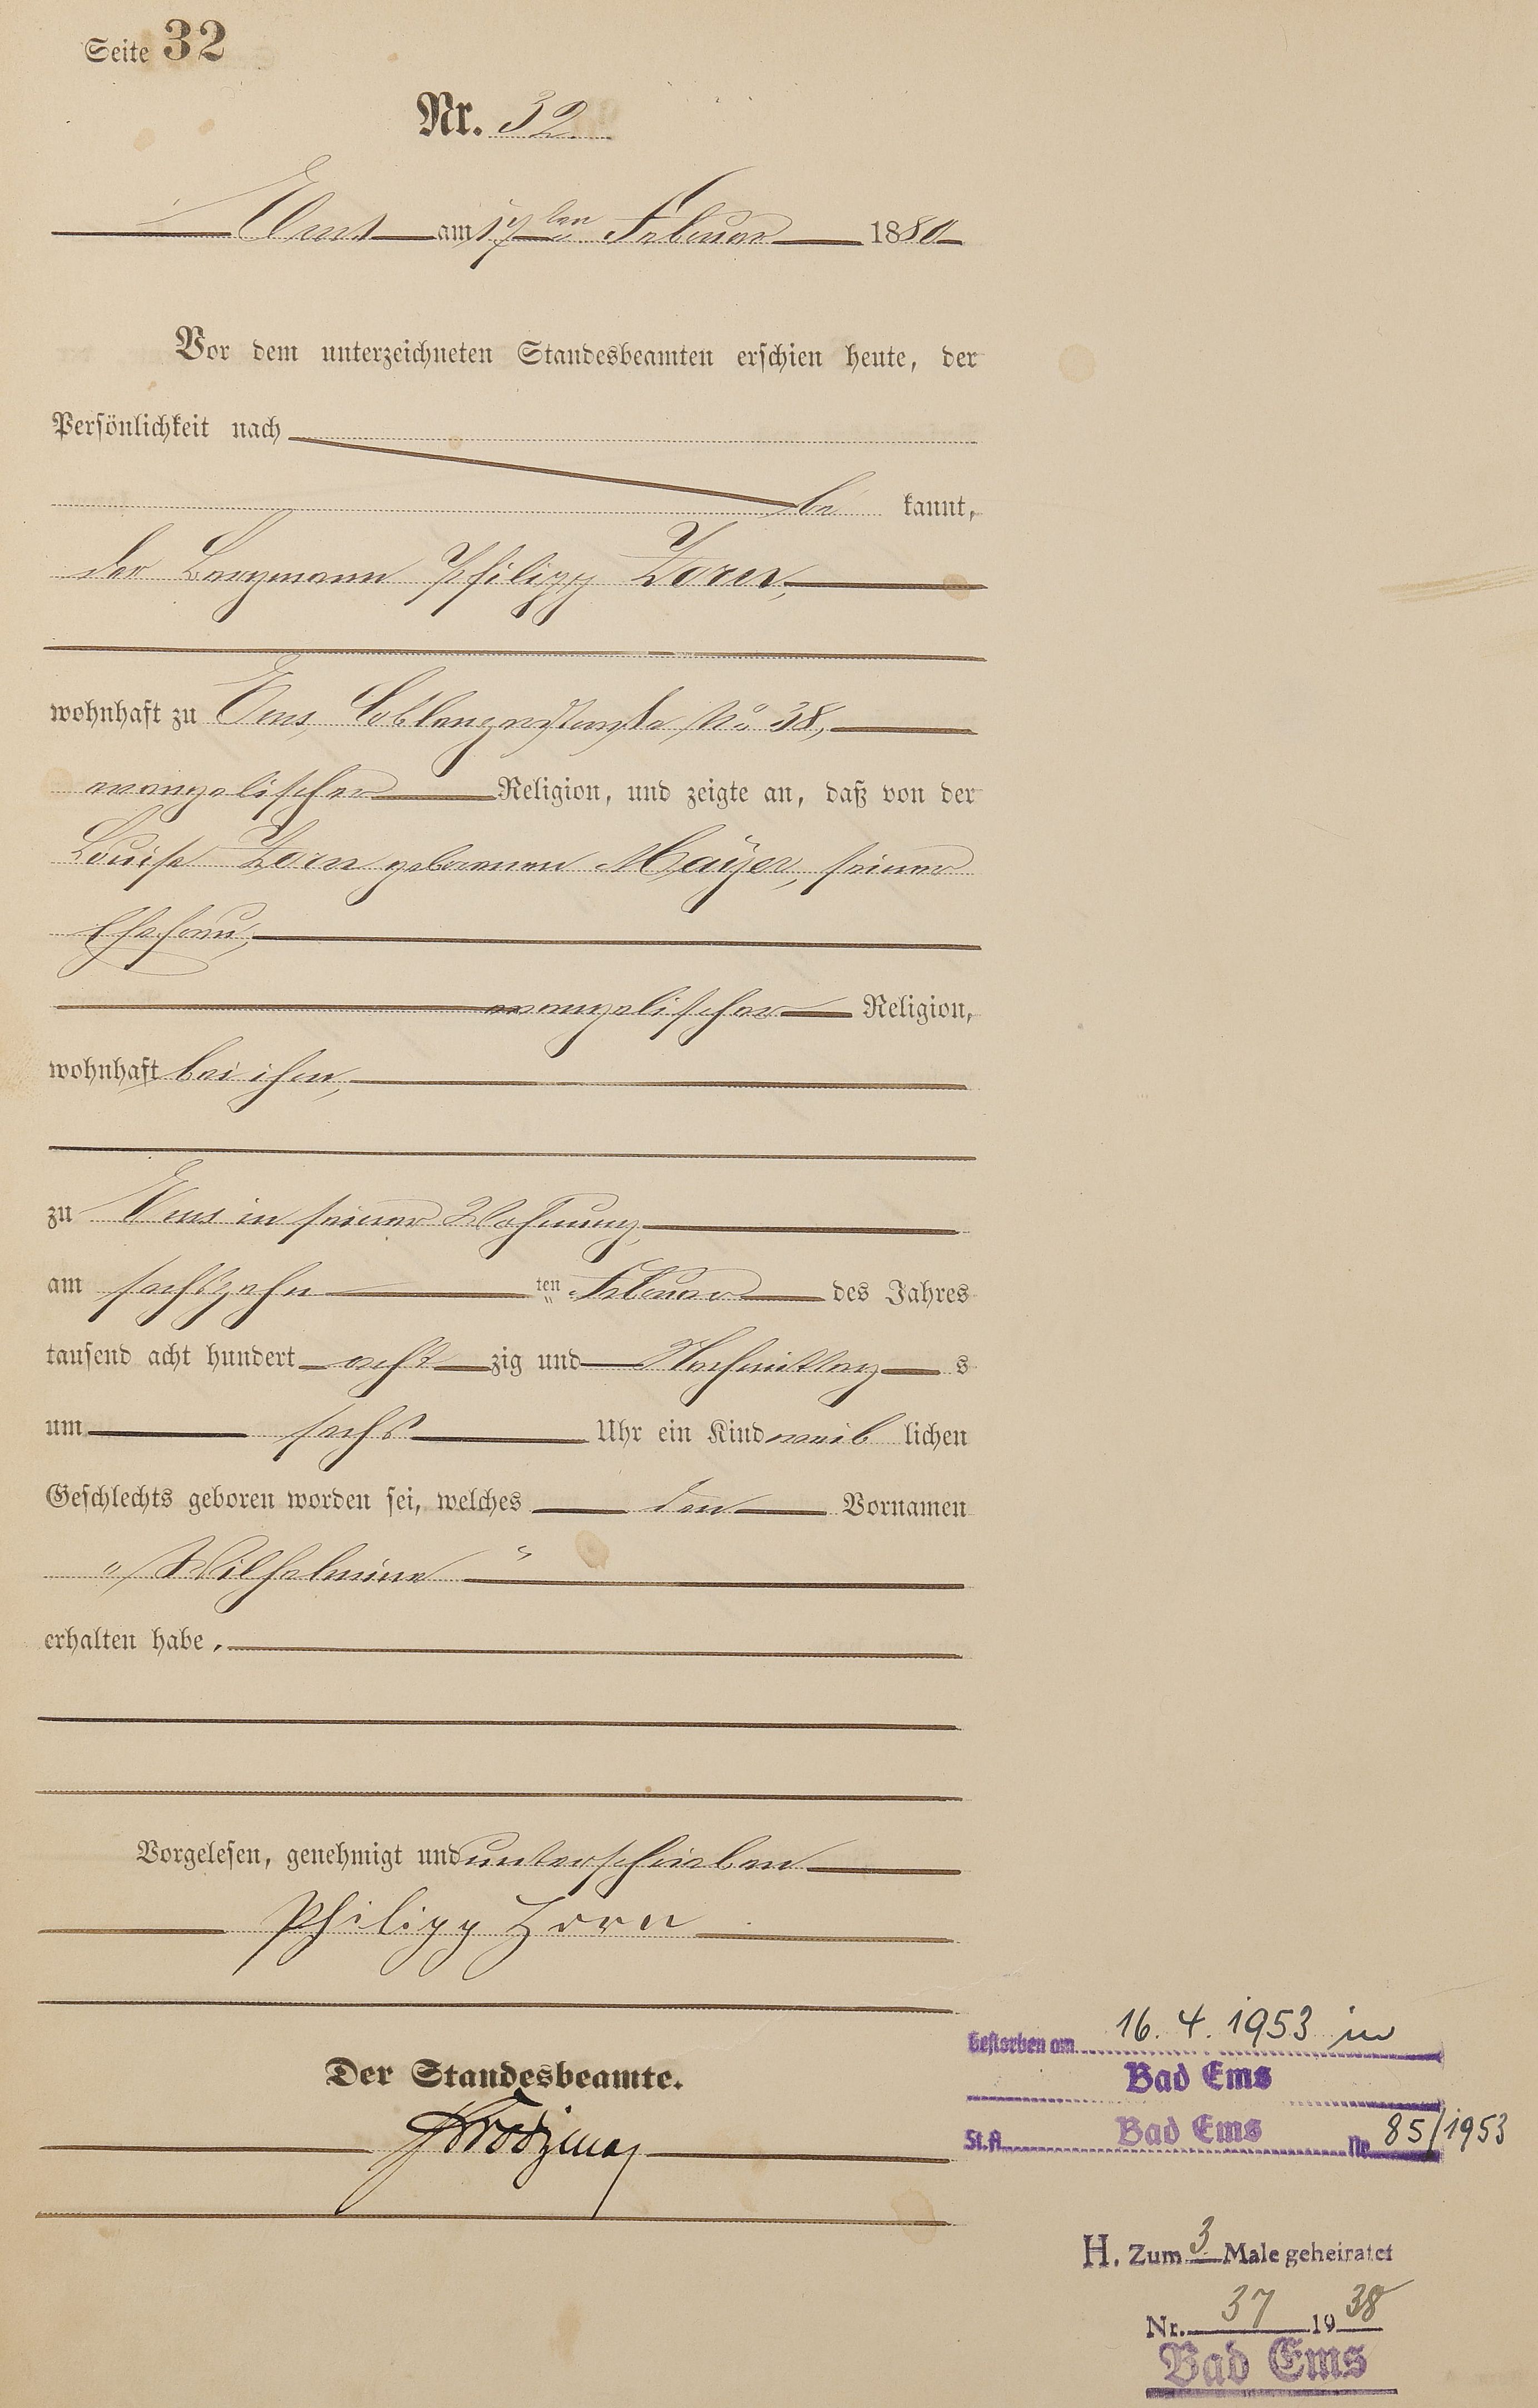 Seite 32
Nr. 32
Ems am 17ten Februar 1880
Vor dem unterzeichneten Standesbeamten erschien heute, der
Persönlichkeit nach
be kannt,
der Bergmann Philipp Zorn,
wohnhaft zu Ems, Coblenzerstraße No 38,
evangelischer Religion, und zeigte an, daß von der
Louise Zorn geborenen Mayer, seiner
Ehefrau,
evangelischer Religion,
wohnhaft bei ihm,
zu Ems in seiner Wohnung,
am sechszehn ten Februar des Jahres
tausend acht hundert acht zig und Nachmittag s
um sechs Uhr ein Kind weib lichen
Geschlechts geboren worden sei, welches den Vornamen
„Wilhelmine“
erhalten habe.
Vorgelesen, genehmigt und unterschrieben
Philipp Zorn
Der Standesbeamte.
Gestorben am 16. 4. 1953 in
Bad Ems
St.A. Bad Ems Nr. 85/1953
H. Zum 3 Male geheiratet
Nr. 37 1938
Bad Ems